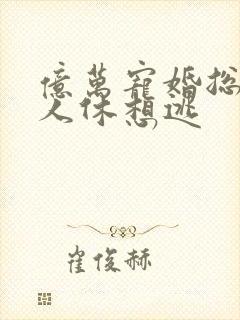 億萬寵婚总
人休想逃
崔俊赫